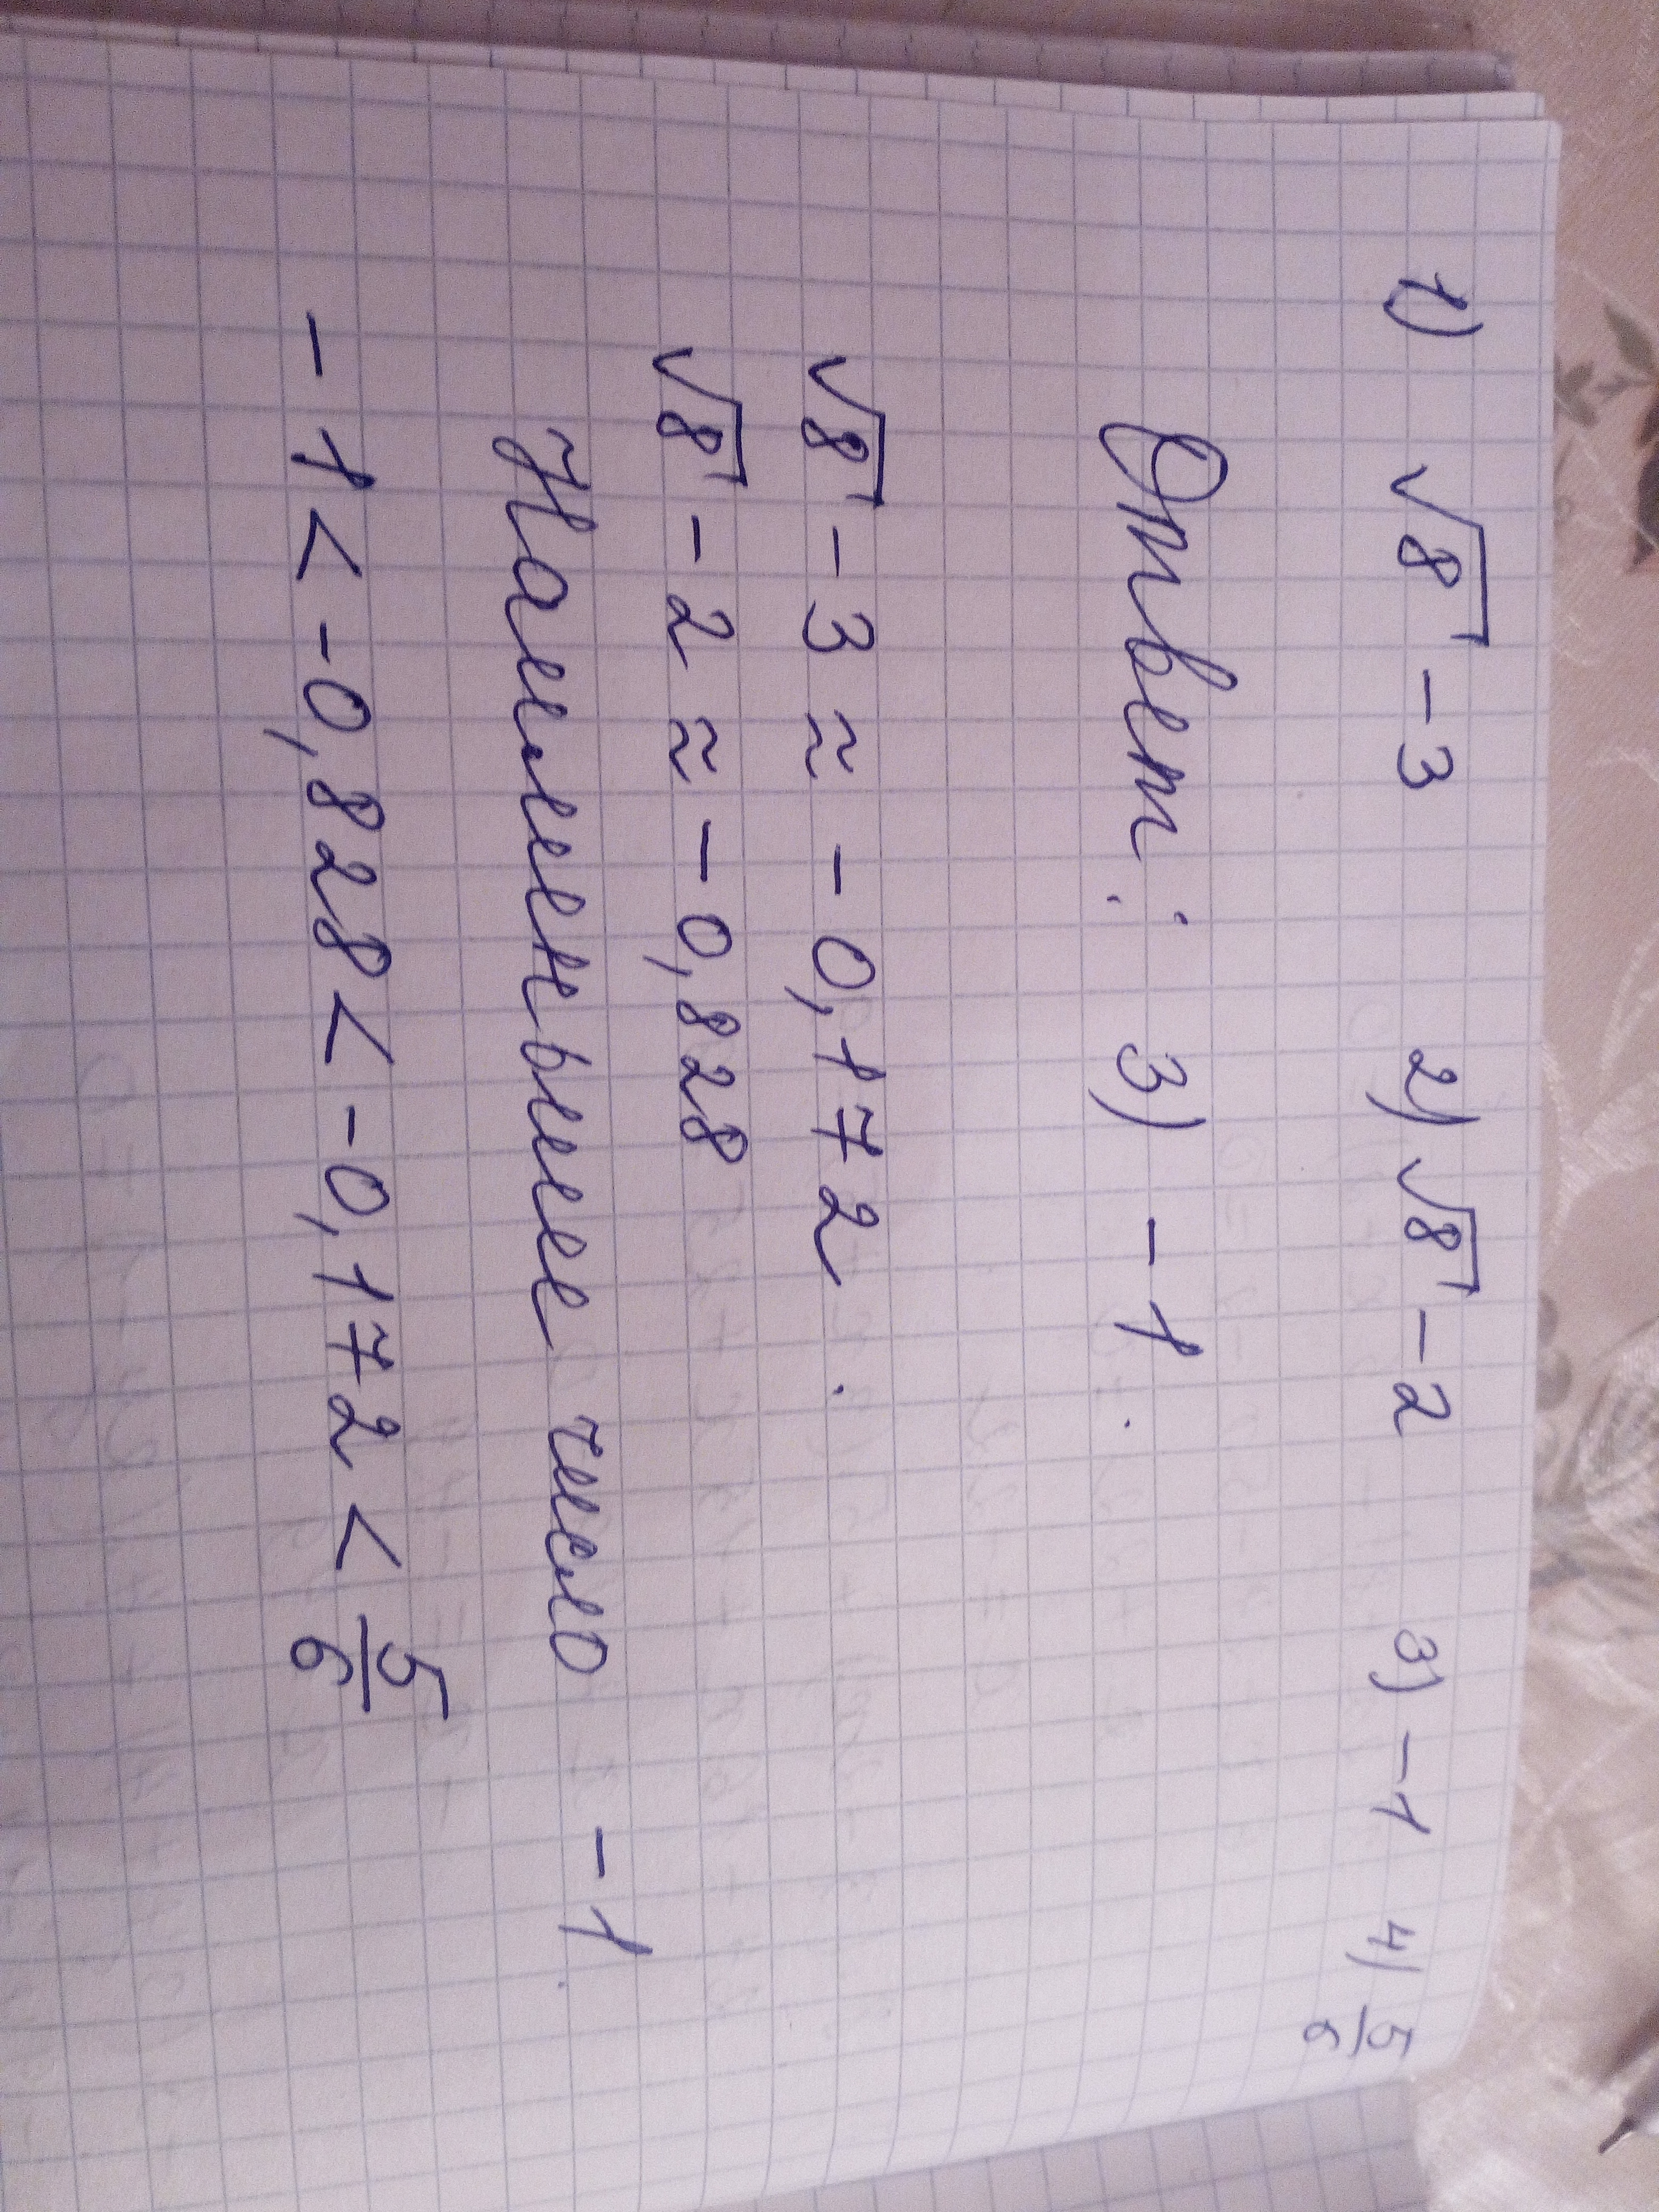 1) √8 - 3 2) √8 - 2 3) -1 4) 5/6
Ответ: 3) -1.
√8 - 3 ≈ -0,172.
√8 - 2 ≈ -0,828
Наименьшее число -1.
-1 < -0,828 < -0,172 < 5/6